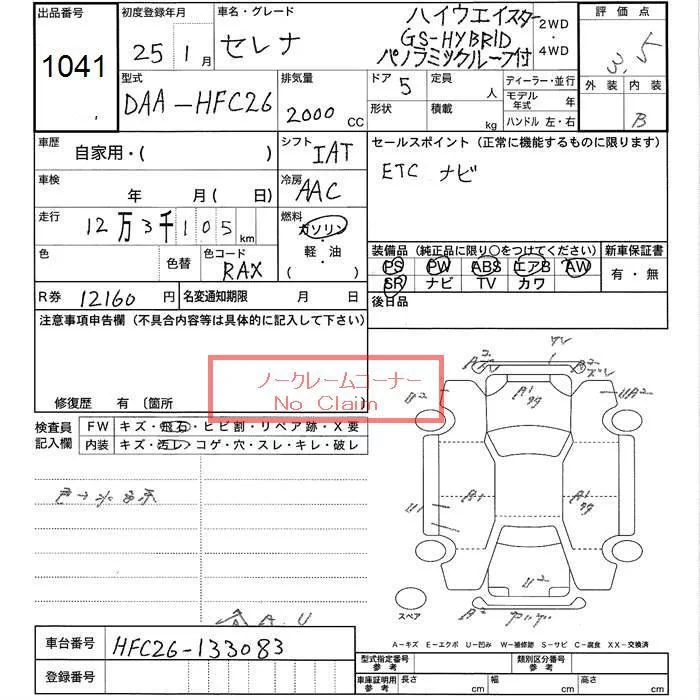 出品番号
1041
初度登録年月
25 1月
車名・グレード
セレナ
ハイウエイスター
GS-HYBRID
パノラミックルーフ付
2WD
・
4WD
評価点
3.5
外装 内装
B
型式
DAA-HFC26
排気量
2000 CC
ドア 5
形状
定員 人
積載 kg
ディーラー・並行
モデル年式 年
ハンドル 左・右
車歴
自家用・( )
シフト IAT
車検 年 月(日)
冷房 AAC
走行 12万3千105 km
燃料 ガソリン・軽・油
( )
色 色替
色コード RAX
R券 12160 円
名変通知期限 月 日
セールスポイント(正常に機能するものに限ります)
ETC ナビ
装備品(純正品に限り○をつけてください)
PS PW ABS エアB AW
SR ナビ TV カワ
新車保証書
有・無
後日品
注意事項申告欄(不具合内容等は具体的に記入して下さい)
ノークレームコーナー
No Claim
修復歴 有〔箇所
検査員記入欄
FW キズ・飛石・ヒビ割・リペア跡・X要
内装 キズ・汚レ・コゲ・穴・スレ・キレ・破レ
A2
A2
U2
UA2
A1
A1
A1
U1
U2
A2
スペア
A-キズ E-エクボ U-凹み W-補修跡 S-サビ C-腐食 XX-交換済
車台番号 HFC26-133083
登録番号
型式指定番号 参考
類別区分番号 参考
車庫証明用 参考
長さ cm
幅 cm
高さ cm